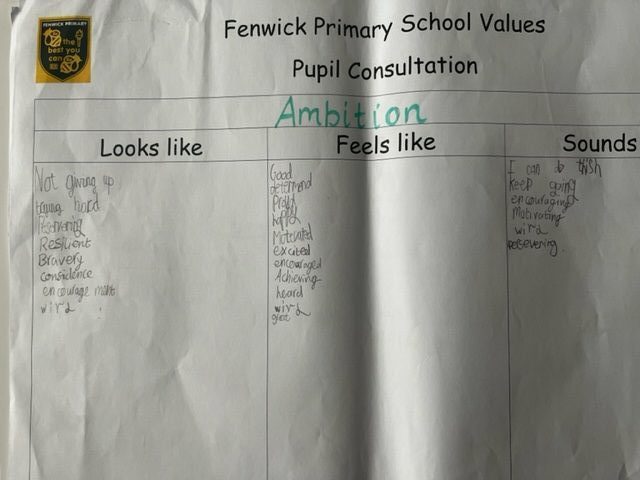 FENWICK PRIMARY
the
best you
can
Fenwick Primary School Values
Pupil Consultation
Ambition
Looks like
Feels like
Sounds
Not giving up
trying hard
Perservering
Resilient
Bravery
considence
encourage ment
wird
Good
determind
Proud
happy
Motivated
excited
encouraged
Achieving
heard
wird
I can do thish
Keep going
encouraging
Motivating
wird
persevering.